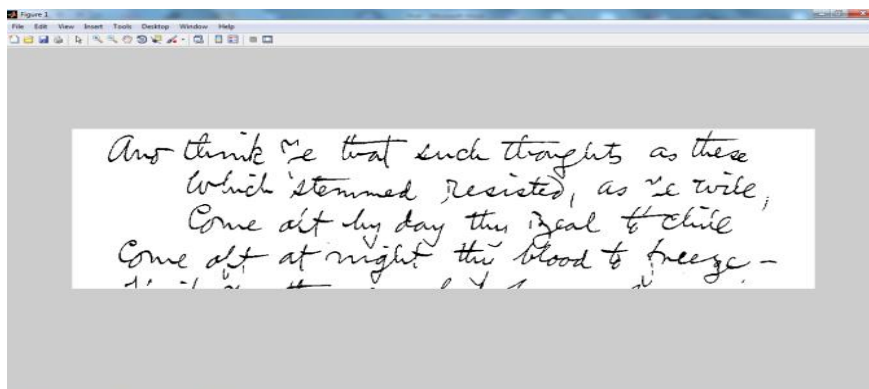 Figure 1
File Edit View Insert Tools Desktop Window Help
And think Ye that such thoughts as these
Which stemmed, resisted, as Ye will,
Come oft by day thy zeal to chill
Come oft at night thy blood to freeze –